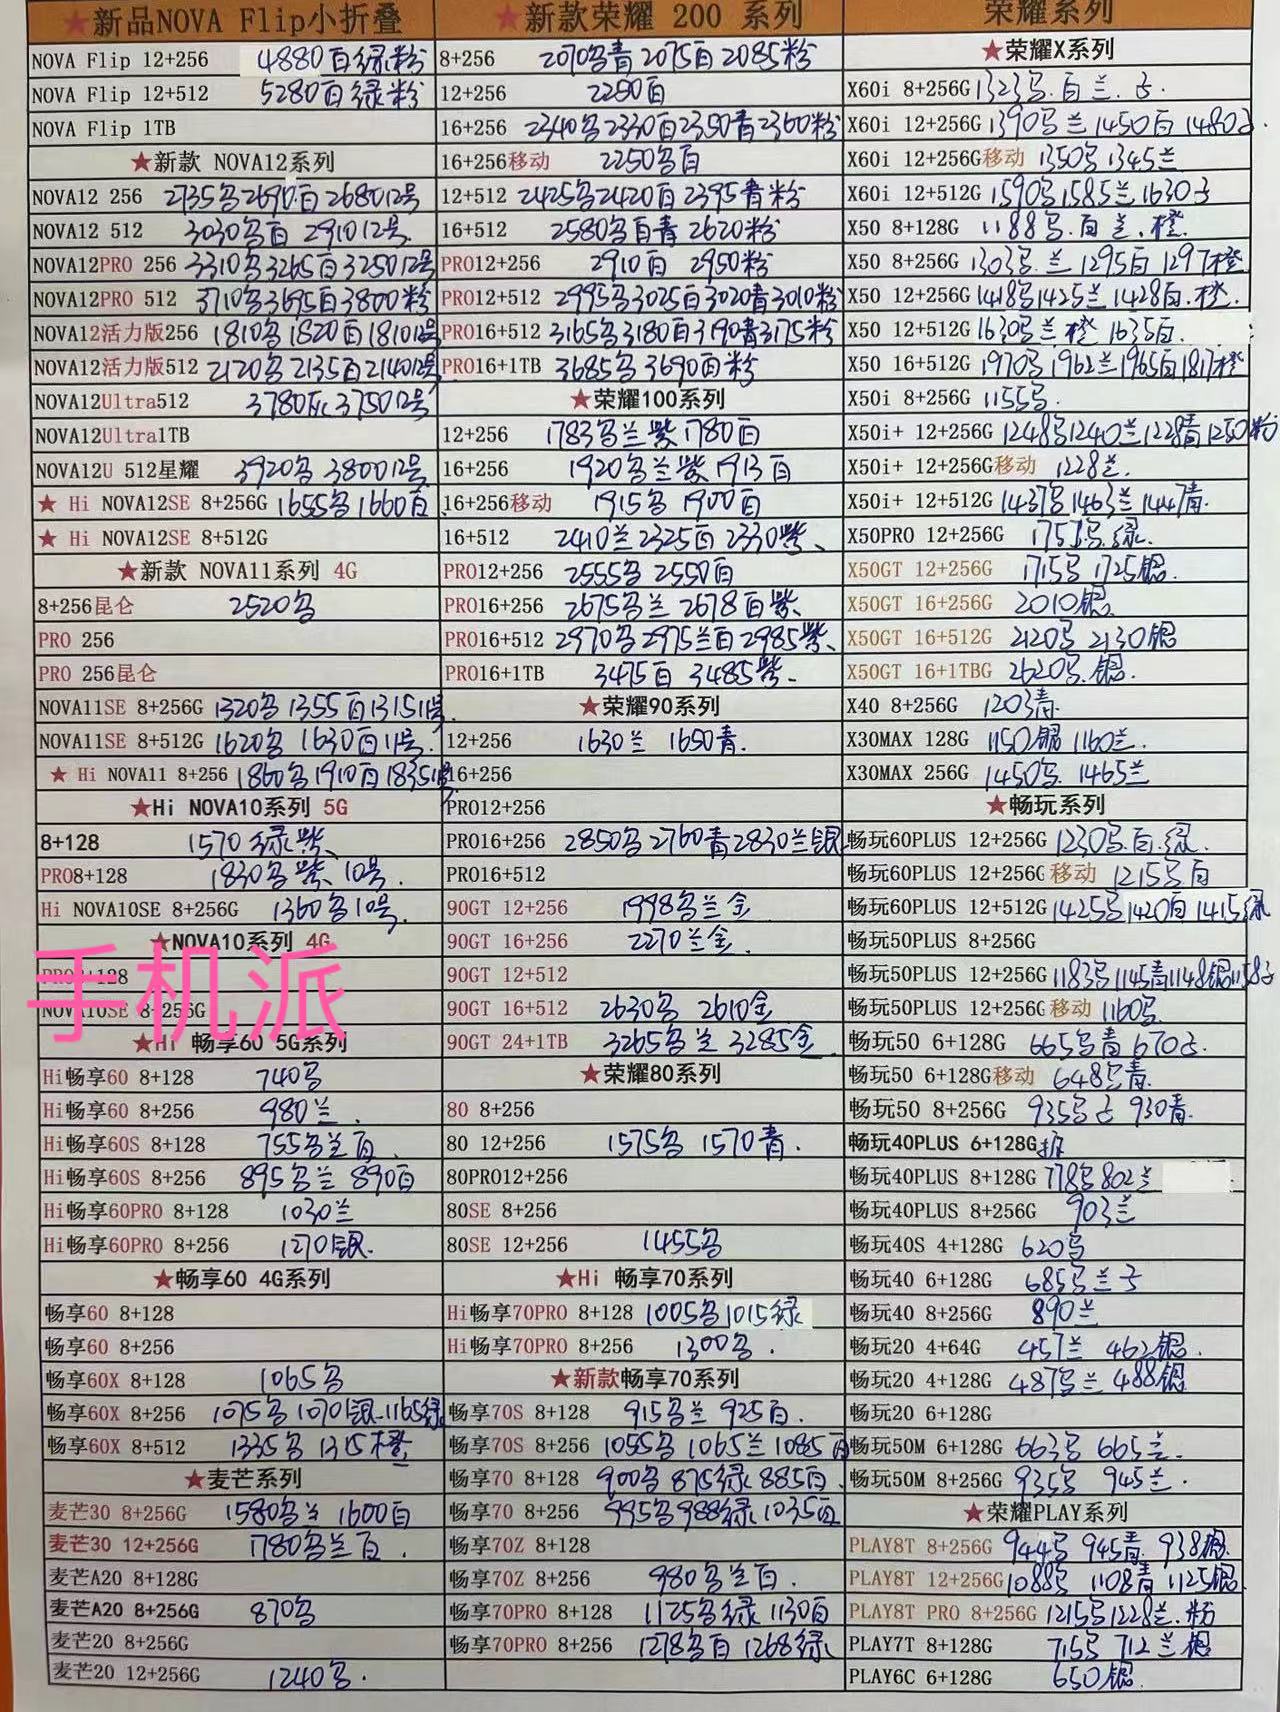 ★新品NOVA Flip小折叠
NOVA Flip 12+256 4880白绿粉
NOVA Flip 12+512 5280白绿粉
NOVA Flip 1TB
★新款 NOVA12系列
NOVA12 256 2735 2690白 2680 12号
NOVA12 512 3030 白 2910 12号
NOVA12PRO 256 3310 3265白 3250 12号
NOVA12PRO 512 3710 3695白 3800粉
NOVA12活力版256 1810 1820白 1810 12号
NOVA12活力版512 2120 2135白 2140 12号
NOVA12Ultra512 3780灰 3750 12号
NOVA12Ultra1TB
NOVA12U 512星耀 3920 3800 12号
★ Hi NOVA12SE 8+256G 1655 1660白
★ Hi NOVA12SE 8+512G
★新款 NOVA11系列 4G
8+256昆仑 2520
PRO 256
PRO 256昆仑
NOVA11SE 8+256G 1320 1355白 1315 11号
NOVA11SE 8+512G 1620 1630白 11号.
★ Hi NOVA11 8+256 1860 1910白 1835 11号
★Hi NOVA10系列 5G
8+128 1570绿紫
PRO8+128 1830 紫、10号.
Hi NOVA10SE 8+256G 1360 10号
★NOVA10系列 4G
PRO8+128
NOVA10SE 8+256G
手机派
★Hi 畅享60 5G系列
Hi畅享60 8+128 740
Hi畅享60 8+256 980兰.
Hi畅享60S 8+128 755 兰白.
Hi畅享60S 8+256 895 兰 890白
Hi畅享60PRO 8+128 1030兰
Hi畅享60PRO 8+256 1270银.
★畅享60 4G系列
畅享60 8+128
畅享60 8+256
畅享60X 8+128 1065
畅享60X 8+256 1075 1070银 1165绿
畅享60X 8+512 1335 1315橙
★麦芒系列
麦芒30 8+256G 1580 兰 1600白
麦芒30 12+256G 1780 兰白.
麦芒A20 8+128G
麦芒A20 8+256G 870
麦芒20 8+256G
麦芒20 12+256G 1240.
★新款荣耀 200 系列
8+256 2070 青 2075白 2085粉
12+256 2250白
16+256 2340 2330白 2350青 2360粉
16+256移动 2250 白
12+512 2425 2420白 2395青粉
16+512 2580 白青 2620粉
PRO12+256 2910白 2950粉
PRO12+512 2995 3025白 3020青 3010粉
PRO16+512 3165 3180白 3190青 3175粉
PRO16+1TB 3685 3690白粉
★荣耀100系列
12+256 1783 兰紫 1780白
16+256 1920 兰紫 1913白
16+256移动 1915 1900白
16+512 2410兰 2325白 2330紫、
PRO12+256 2555 2550白
PRO16+256 2675 兰 2678白紫、
PRO16+512 2970 2975兰白 2985紫、
PRO16+1TB 3475白 3485紫、
★荣耀90系列
12+256 1630兰 1650青.
16+256
PRO12+256
PRO16+256 2850 2760青 2830兰银
PRO16+512
90GT 12+256 1998 兰金
90GT 16+256 2270兰金.
90GT 12+512
90GT 16+512 2630 2610金
90GT 24+1TB 3265 兰 3285金.
★荣耀80系列
80 8+256
80 12+256 1575 1570青.
80PRO12+256
80SE 8+256
80SE 12+256 1455
★Hi 畅享70系列
Hi畅享70PRO 8+128 1005 1015绿
Hi畅享70PRO 8+256 1300.
★新款畅享70系列
畅享70S 8+128 915 兰 925白.
畅享70S 8+256 1055 1065兰 1085白
畅享70 8+128 900 875绿 885白.
畅享70 8+256 995 988绿 1035白
畅享70Z 8+128
畅享70Z 8+256 980 兰白.
畅享70PRO 8+128 1125 绿 1130白
畅享70PRO 8+256 1278 白 1268绿
荣耀系列
★荣耀X系列
X60i 8+256G 1323 白兰.
X60i 12+256G 1390 兰 1450白 1480
X60i 12+256G移动 1350 1345兰
X60i 12+512G 1590 1585兰 1630
X50 8+128G 1188 .白兰.橙.
X50 8+256G 1303 .兰 1295白 1297橙
X50 12+256G 1418 1425兰 1428白.橙.
X50 12+512G 1630 兰橙 1635白
X50 16+512G 1970 1962兰 1965白 1817橙
X50i 8+256G 1155.
X50i+ 12+256G 1248 1240兰 1228青 1250粉
X50i+ 12+256G移动 1228兰.
X50i+ 12+512G 1437 1463兰 1447青.
X50PRO 12+256G 175 .绿.
X50GT 12+256G 1715 1725银.
X50GT 16+256G 2010银.
X50GT 16+512G 2120 2130银
X50GT 16+1TBG 2620 .银.
X40 8+256G 1203青.
X30MAX 128G 1150银 1160兰.
X30MAX 256G 1450 . 1465兰
★畅玩系列
畅玩60PLUS 12+256G 1230 .白.绿.
畅玩60PLUS 12+256G 移动 1215 白
畅玩60PLUS 12+512G 1425 1420白 1415绿
畅玩50PLUS 8+256G
畅玩50PLUS 12+256G 1183 1145青 1148银 1158
畅玩50PLUS 12+256G 移动 1160
畅玩50 6+128G 665 青 670
畅玩50 6+128G移动 648 青.
畅玩50 8+256G 935 930青.
畅玩40PLUS 6+128G
畅玩40PLUS 8+128G 778 802兰
畅玩40PLUS 8+256G 903兰
畅玩40S 4+128G 620
畅玩40 6+128G 685 兰
畅玩40 8+256G 890兰
畅玩20 4+64G 457兰 462银.
畅玩20 4+128G 487 兰 488银
畅玩20 6+128G
畅玩50M 6+128G 663 665兰.
畅玩50M 8+256G 935 945兰.
★荣耀PLAY系列
PLAY8T 8+256G 944 945青 938银.
PLAY8T 12+256G 1088 1108青 1125银
PLAY8T PRO 8+256G 1215 1228兰.粉
PLAY7T 8+128G 715 712兰银
PLAY6C 6+128G 650银.